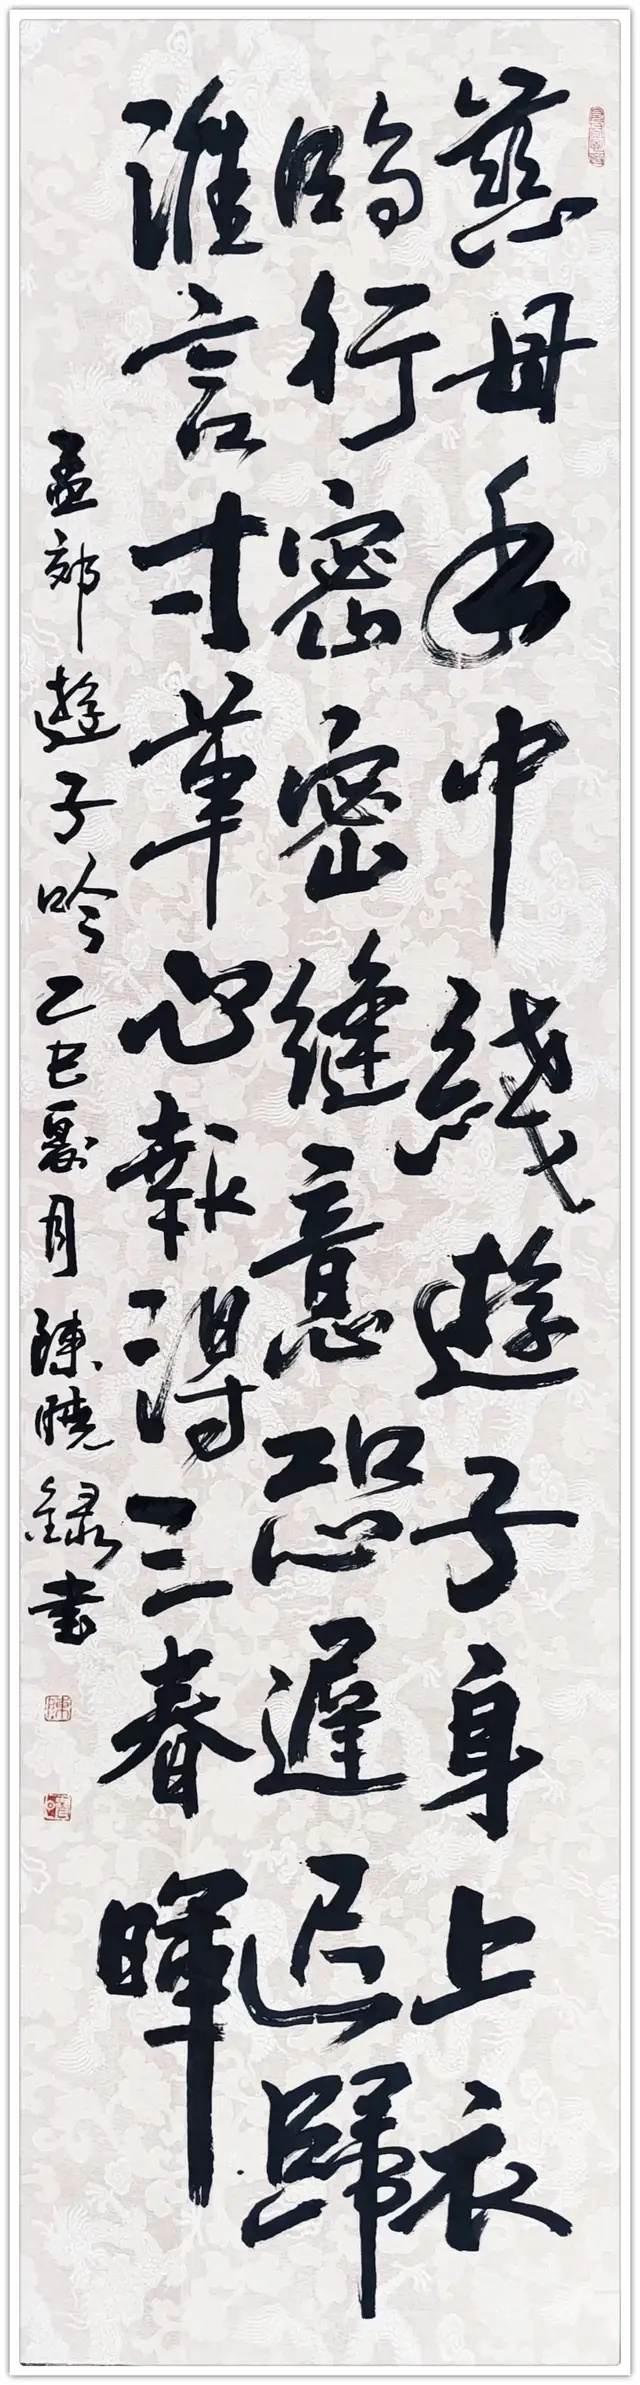 慈母手中綫遊子身上衣
臨行密密縫意恐遲遲歸
誰言寸草心報得三春暉
孟郊遊子吟乙巳夏月陳曉録書